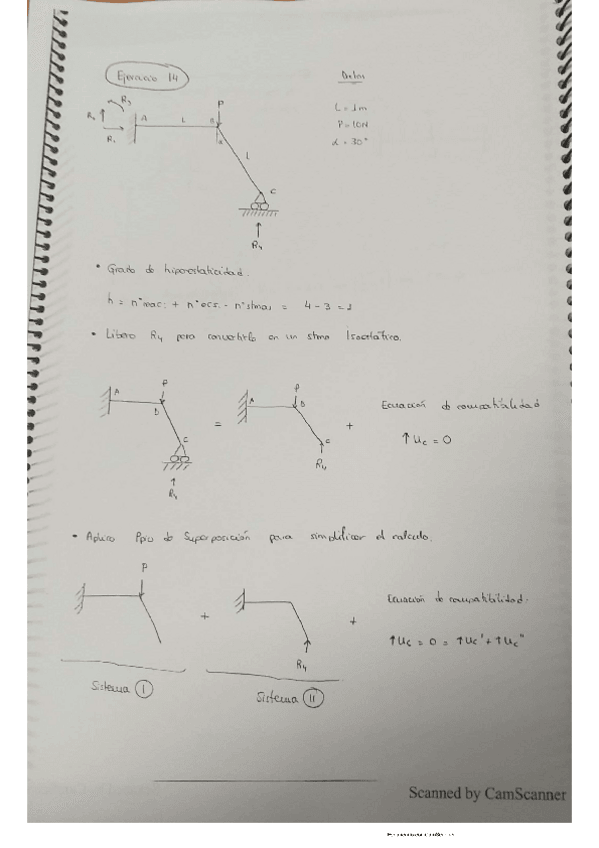 Ejercicio 14
Datos
L = 1m
P = 10N
α = 30°
R₃
R₁
A
L
B
P
α
L
C
R₄
• Grado de hiperestaticidad.
h = nºreac. + nºecs. - nºstmas = 4 - 3 = 1
• Libero R₄ para convertirlo en un stma Isostático.
A
P
B
C
R₄
=
A
P
B
C
R₄
+
Ecuación de compatibilidad
↑ Uc = 0
• Aplico Ppio de Superposición para simplificar el calculo.
P
+
R₄
+
Ecuación de compatibilidad.
↑ Uc = 0 = ↑ Uc' + ↑ Uc''
Sistema I
Sistema II
Scanned by CamScanner